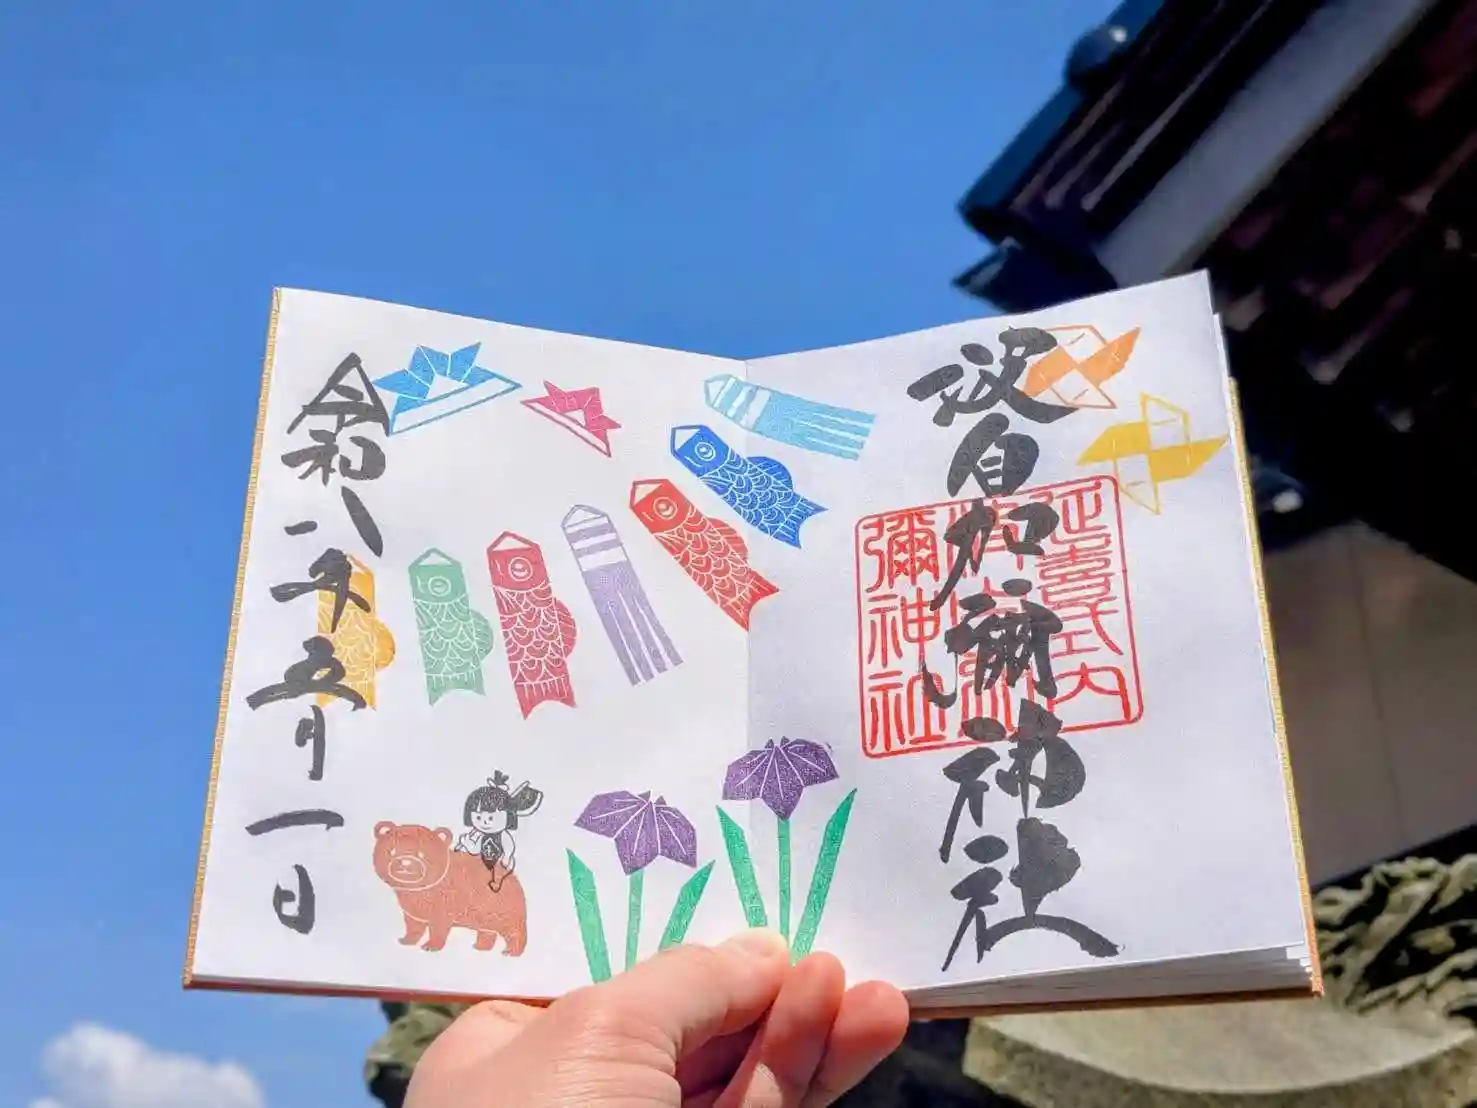 波自加彌神社
延喜式内
波自加
彌神社
令和八年五月一日
金